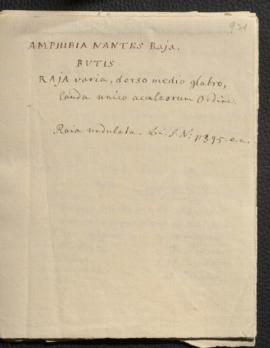 931
AMPHIBIA NANTES Raja.
BUTIS
RAJA varia, dorso medio glabro,
cauda unico aculeorum Ordine.
Raia undulata. Lin S. N. p